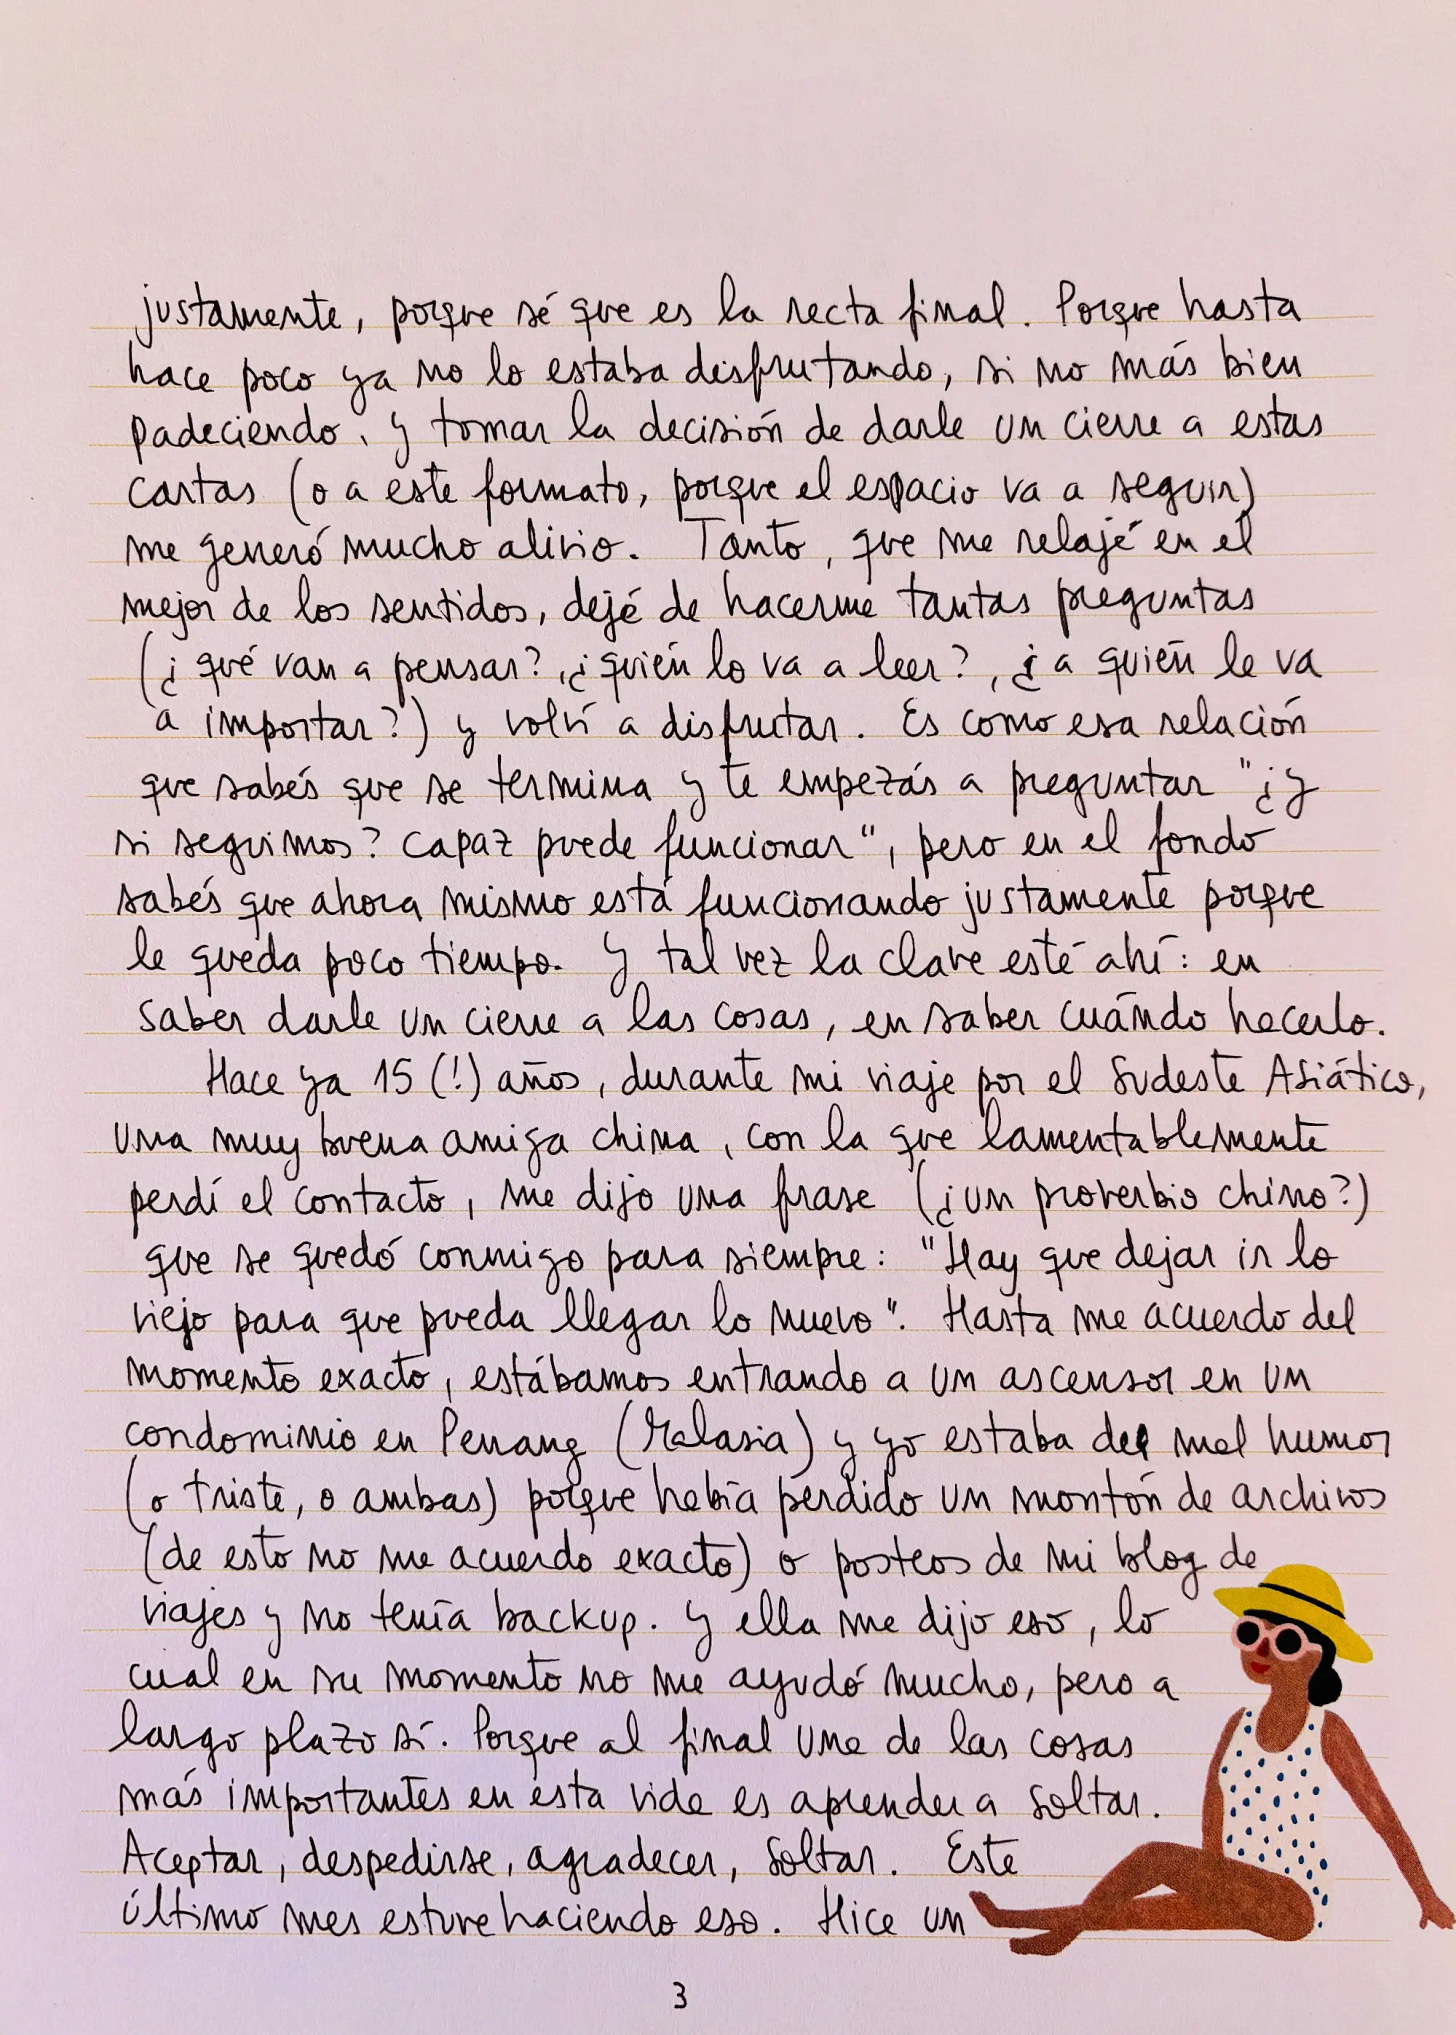 justamente, porque sé que es la recta final. Porque hasta
hace poco ya no lo estaba disfrutando, si no más bien
padeciendo. Y tomar la decisión de darle un cierre a estas
cartas (o a este formato, porque el espacio va a seguir)
me generó mucho alivio. Tanto, que me relajé en el
mejor de los sentidos, dejé de hacerme tantas preguntas
(¿qué van a pensar?, ¿quién lo va a leer?, ¿a quién le va
a importar?) y volví a disfrutar. Es como esa relación
que sabés que se termina y te empezás a preguntar "¿y
si seguimos? Capaz puede funcionar", pero en el fondo
sabés que ahora mismo está funcionando justamente porque
le queda poco tiempo. Y tal vez la clave esté ahí: en
saber darle un cierre a las cosas, en saber cuándo hacerlo.
Hace ya 15 (!) años, durante mi viaje por el Sudeste Asiático,
una muy buena amiga china, con la que lamentablemente
perdí el contacto, me dijo una frase (¿un proverbio chino?)
que se quedó conmigo para siempre: "Hay que dejar ir lo
viejo para que pueda llegar lo nuevo". Hasta me acuerdo del
momento exacto, estábamos entrando a un ascensor en un
condominio en Penang (Malasia) y yo estaba de mal humor
(o triste, o ambas) porque había perdido un montón de archivos
(de esto no me acuerdo exacto) o posteos de mi blog de
viajes y no tenía backup. Y ella me dijo eso, lo
cual en su momento no me ayudó mucho, pero a
largo plazo sí. Porque al final una de las cosas
más importantes en esta vida es aprender a soltar.
Aceptar, despedirse, agradecer, soltar. Este
último mes estuve haciendo eso. Hice un
3